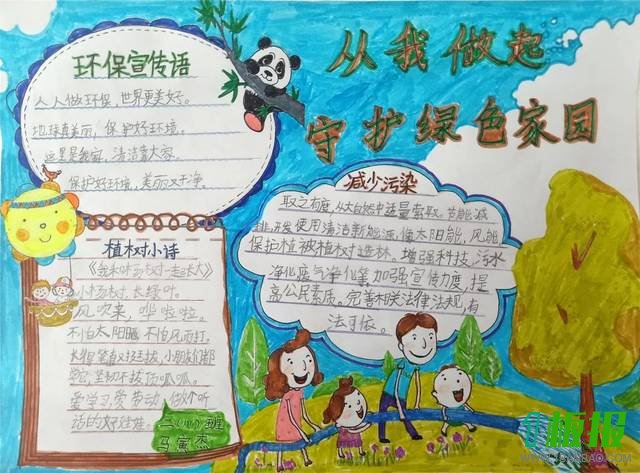 从我做起
守护绿色家园
环保宣传语
人人做环保,世界更美好。
地球真美丽,保护好环境。
这里是我家,清洁靠大家。
保护好环境,美丽又干净。
减少污染
取之有度,从大自然中适量索取。节能减
排,开发使用清洁新能源,像太阳能,风能
保护植被植树造林,增强科技,污水
净化废气净化等加强宣传力度,提
高公民素质。完善相关法律法规,有
法可依。
植树小诗
《我和小杨树一起长大》
小杨树,长绿叶。
风吹来,哗啦啦。
不怕太阳晒,不怕风雨打。
长得笔直又挺拔,小朋友们都
坚韧不拔顶呱呱。
爱学习爱劳动,做个听
话的好娃娃。
二(八)班
马寅杰
板报